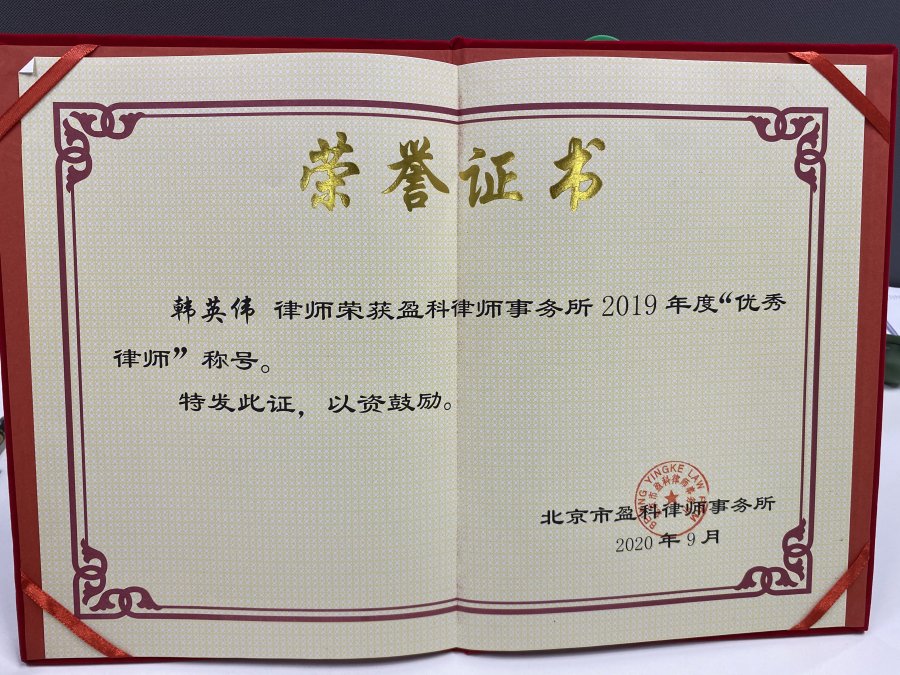 荣誉证书
韩英伟 律师荣获盈科律师事务所 2019 年度“优秀
律师”称号。
特发此证，以资鼓励。
BEIJING YINGKE LAW FIRM
北京市盈科律师事务所
北京市盈科律师事务所
2020 年 9 月